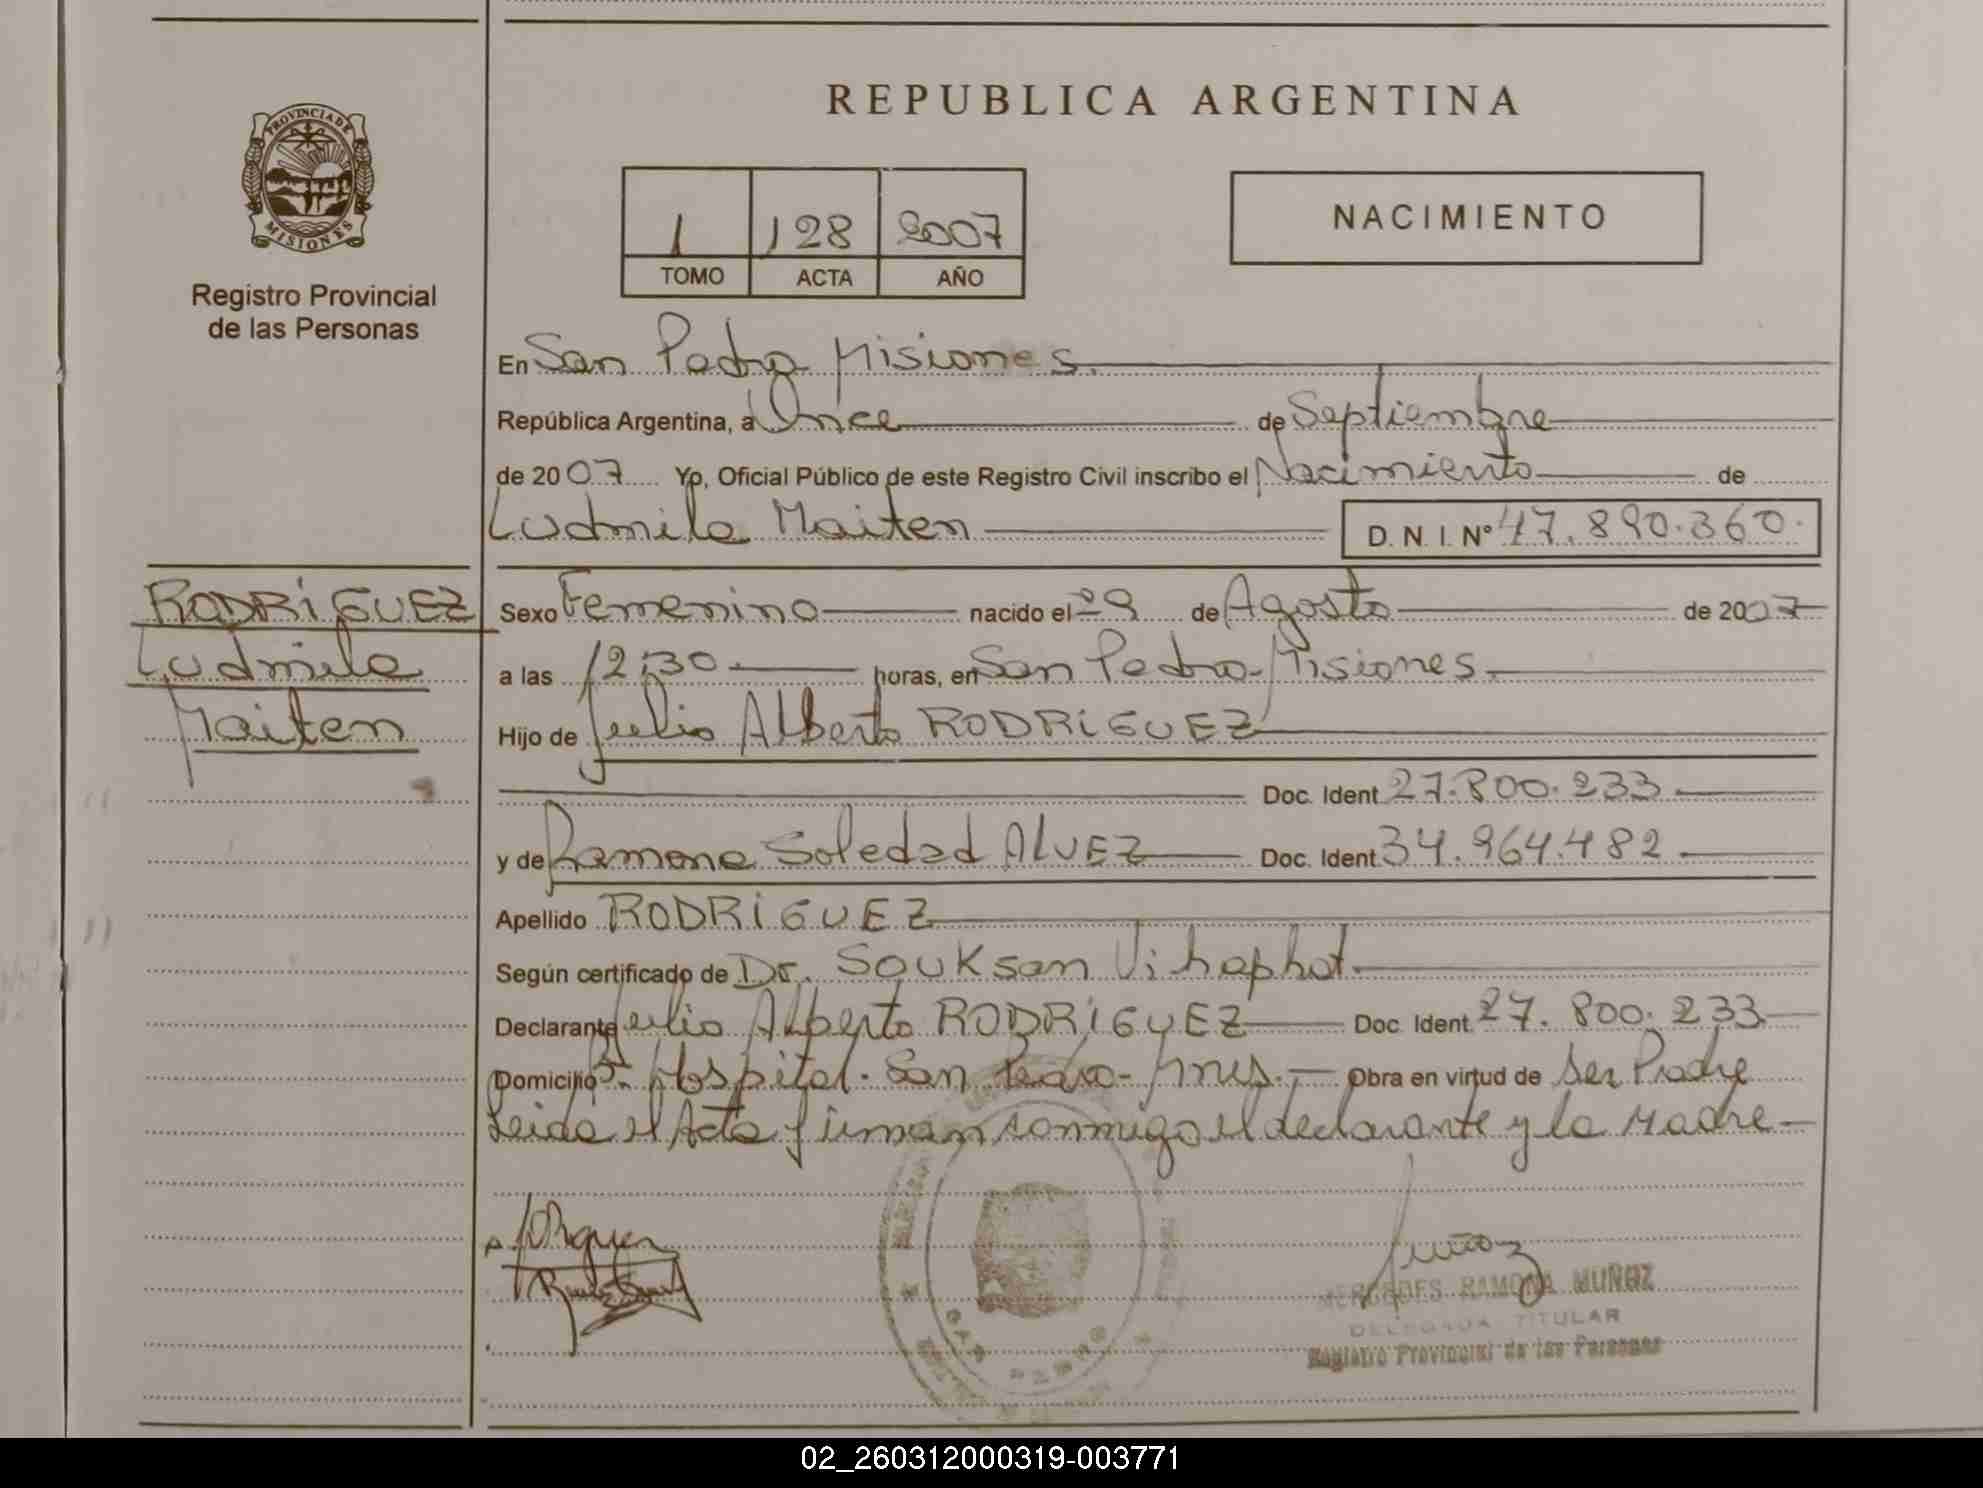 PROVINCIA DE
MISIONES
Registro Provincial
de las Personas
REPUBLICA ARGENTINA
1 128 2007
TOMO ACTA AÑO
NACIMIENTO
En San Pedro Misiones.
República Argentina, a Once de Septiembre
de 2007 Yo, Oficial Público de este Registro Civil inscribo el Nacimiento de
Ludmila Maiten D. N. I. Nº 47.890.360.
RODRÍGUEZ
Ludmila
Maiten
Sexo Femenino nacido el 29 de Agosto de 2007
a las 12:30 horas, en San Pedro Misiones.
Hijo de Julio Alberto RODRÍGUEZ
Doc. Ident. 27.800.233
y de Ramona Soledad ALVEZ Doc. Ident. 34.964.482
Apellido RODRÍGUEZ
Según certificado de Dr. Souksan Vihaphat.
Declarante Julio Alberto RODRÍGUEZ Doc. Ident. 27.800.233
Domicilio Bº Hospital. San Pedro-Mnes. Obra en virtud de ser Padre
Leida el Acta firman conmigo el declarante y la Madre
MERCEDES RAMONA MUÑOZ
DELEGADA TITULAR
Registro Provincial de las Personas
02_260312000319-003771